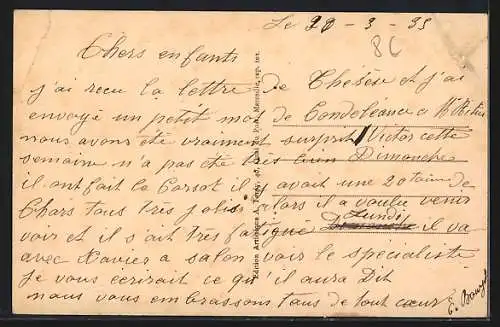 Le 28 - 3 - 35
8C
Chers enfants
j'ai recu la lettre de Thésèse et j'ai
envoyé un petit mot de Condoléance a Mr
nous avons été vraiment surprit Victor cette
semaine n'a pas été très bien Dimanche
il ont fait la Corsot il y avait une 20taine de
Chars tous très jolis alors il a voulu venir
voir et il s'ait très fatigué Lundi il va
avec Xavier a salon voir le spécialiste
je vous écrirait ce qu'il aura Dit
nous vous embrassons tous de tout cœur
Edition Artistique A. Tardy, Marseille, rep. int.